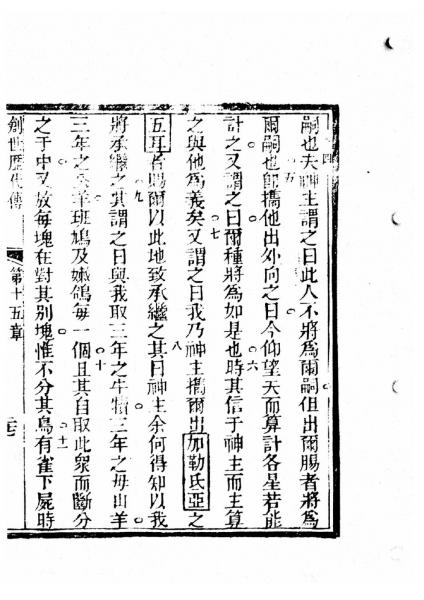 嗣也夫神主謂之曰此人不將為爾嗣但出爾腸者將為
爾嗣也即攜他出外向之曰今仰望天而算計各星若能
計之又謂之曰爾種將為如是也時其信于神主而主算
之與他為義矣又謂之曰我乃神主攜爾出加勒氏亞之
五耳者賜爾以此地致承繼之其曰神主余何得知以我
將承繼之其謂之曰與我取三年之牛犢三年之母山羊
三年之公羊班鳩及嫩鴿每一個且其自取此衆而斷分
之于中又放每塊在對其別塊惟不分其鳥有雀下屍時
創世歷代傳 第十五章
四
五
六
七
八
九
十
十一